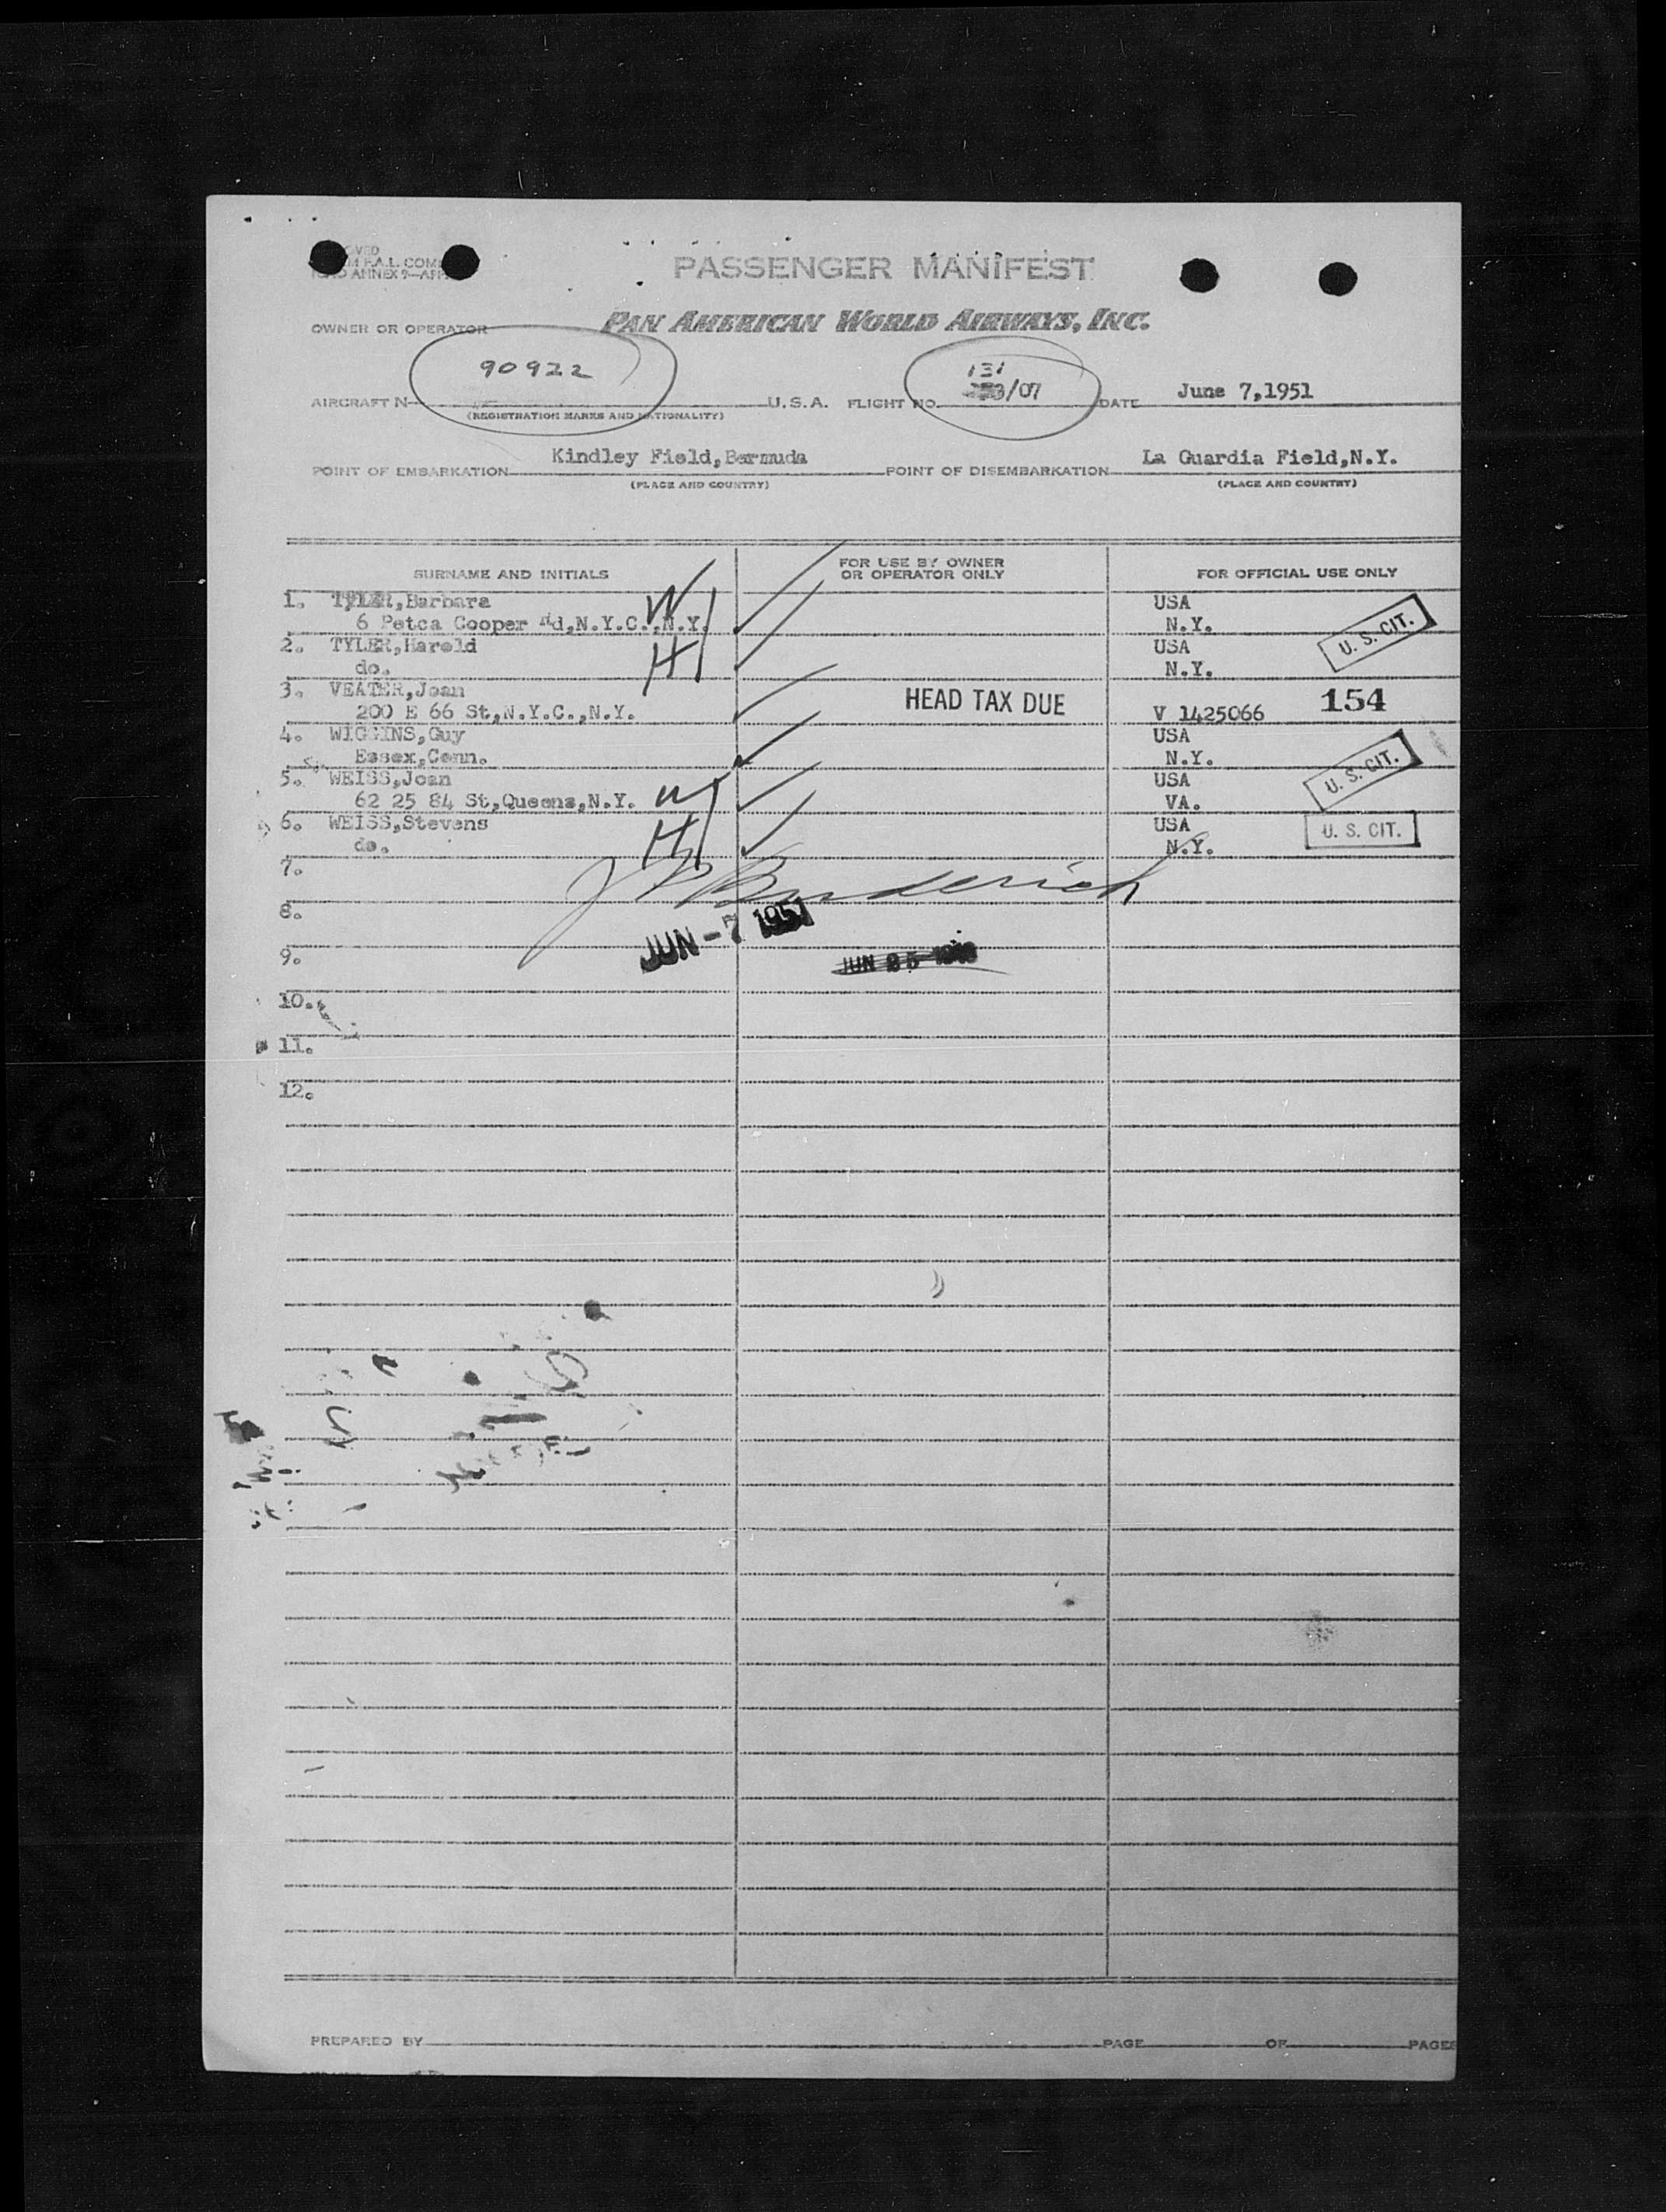 PASSENGER MANIFEST
F.A.L. COM
ANNEX 9—APP
OWNER OR OPERATOR PAN AMERICAN WORLD AIRWAYS, INC.
90922 131
AIRCRAFT N U.S.A. FLIGHT NO. /07 DATE June 7,1951
(REGISTRATION MARKS AND NATIONALITY)
POINT OF EMBARKATION Kindley Field,Bermuda POINT OF DISEMBARKATION La Guardia Field,N.Y.
(PLACE AND COUNTRY) (PLACE AND COUNTRY)
SURNAME AND INITIALS FOR USE BY OWNER OR OPERATOR ONLY FOR OFFICIAL USE ONLY
1. TYLER,Barbara W USA
6 Petca Cooper Rd,N.Y.C.,N.Y. N.Y. U. S. CIT.
2. TYLER,Harold H USA
do. N.Y.
3. VEATER,Joan HEAD TAX DUE 154
200 E 66 St,N.Y.C.,N.Y. V 1425066
4. WIGGINS,Guy USA
Essex,Conn. N.Y. U. S. CIT.
5. WEISS,Joan USA
62 25 84 St,Queens,N.Y. W VA.
6. WEISS,Stevens H USA U. S. CIT.
do. N.Y.
7.
8.
JUN -7 1951
9. JUN 25
10.
11.
12.
PREPARED BY PAGE OF PAGES